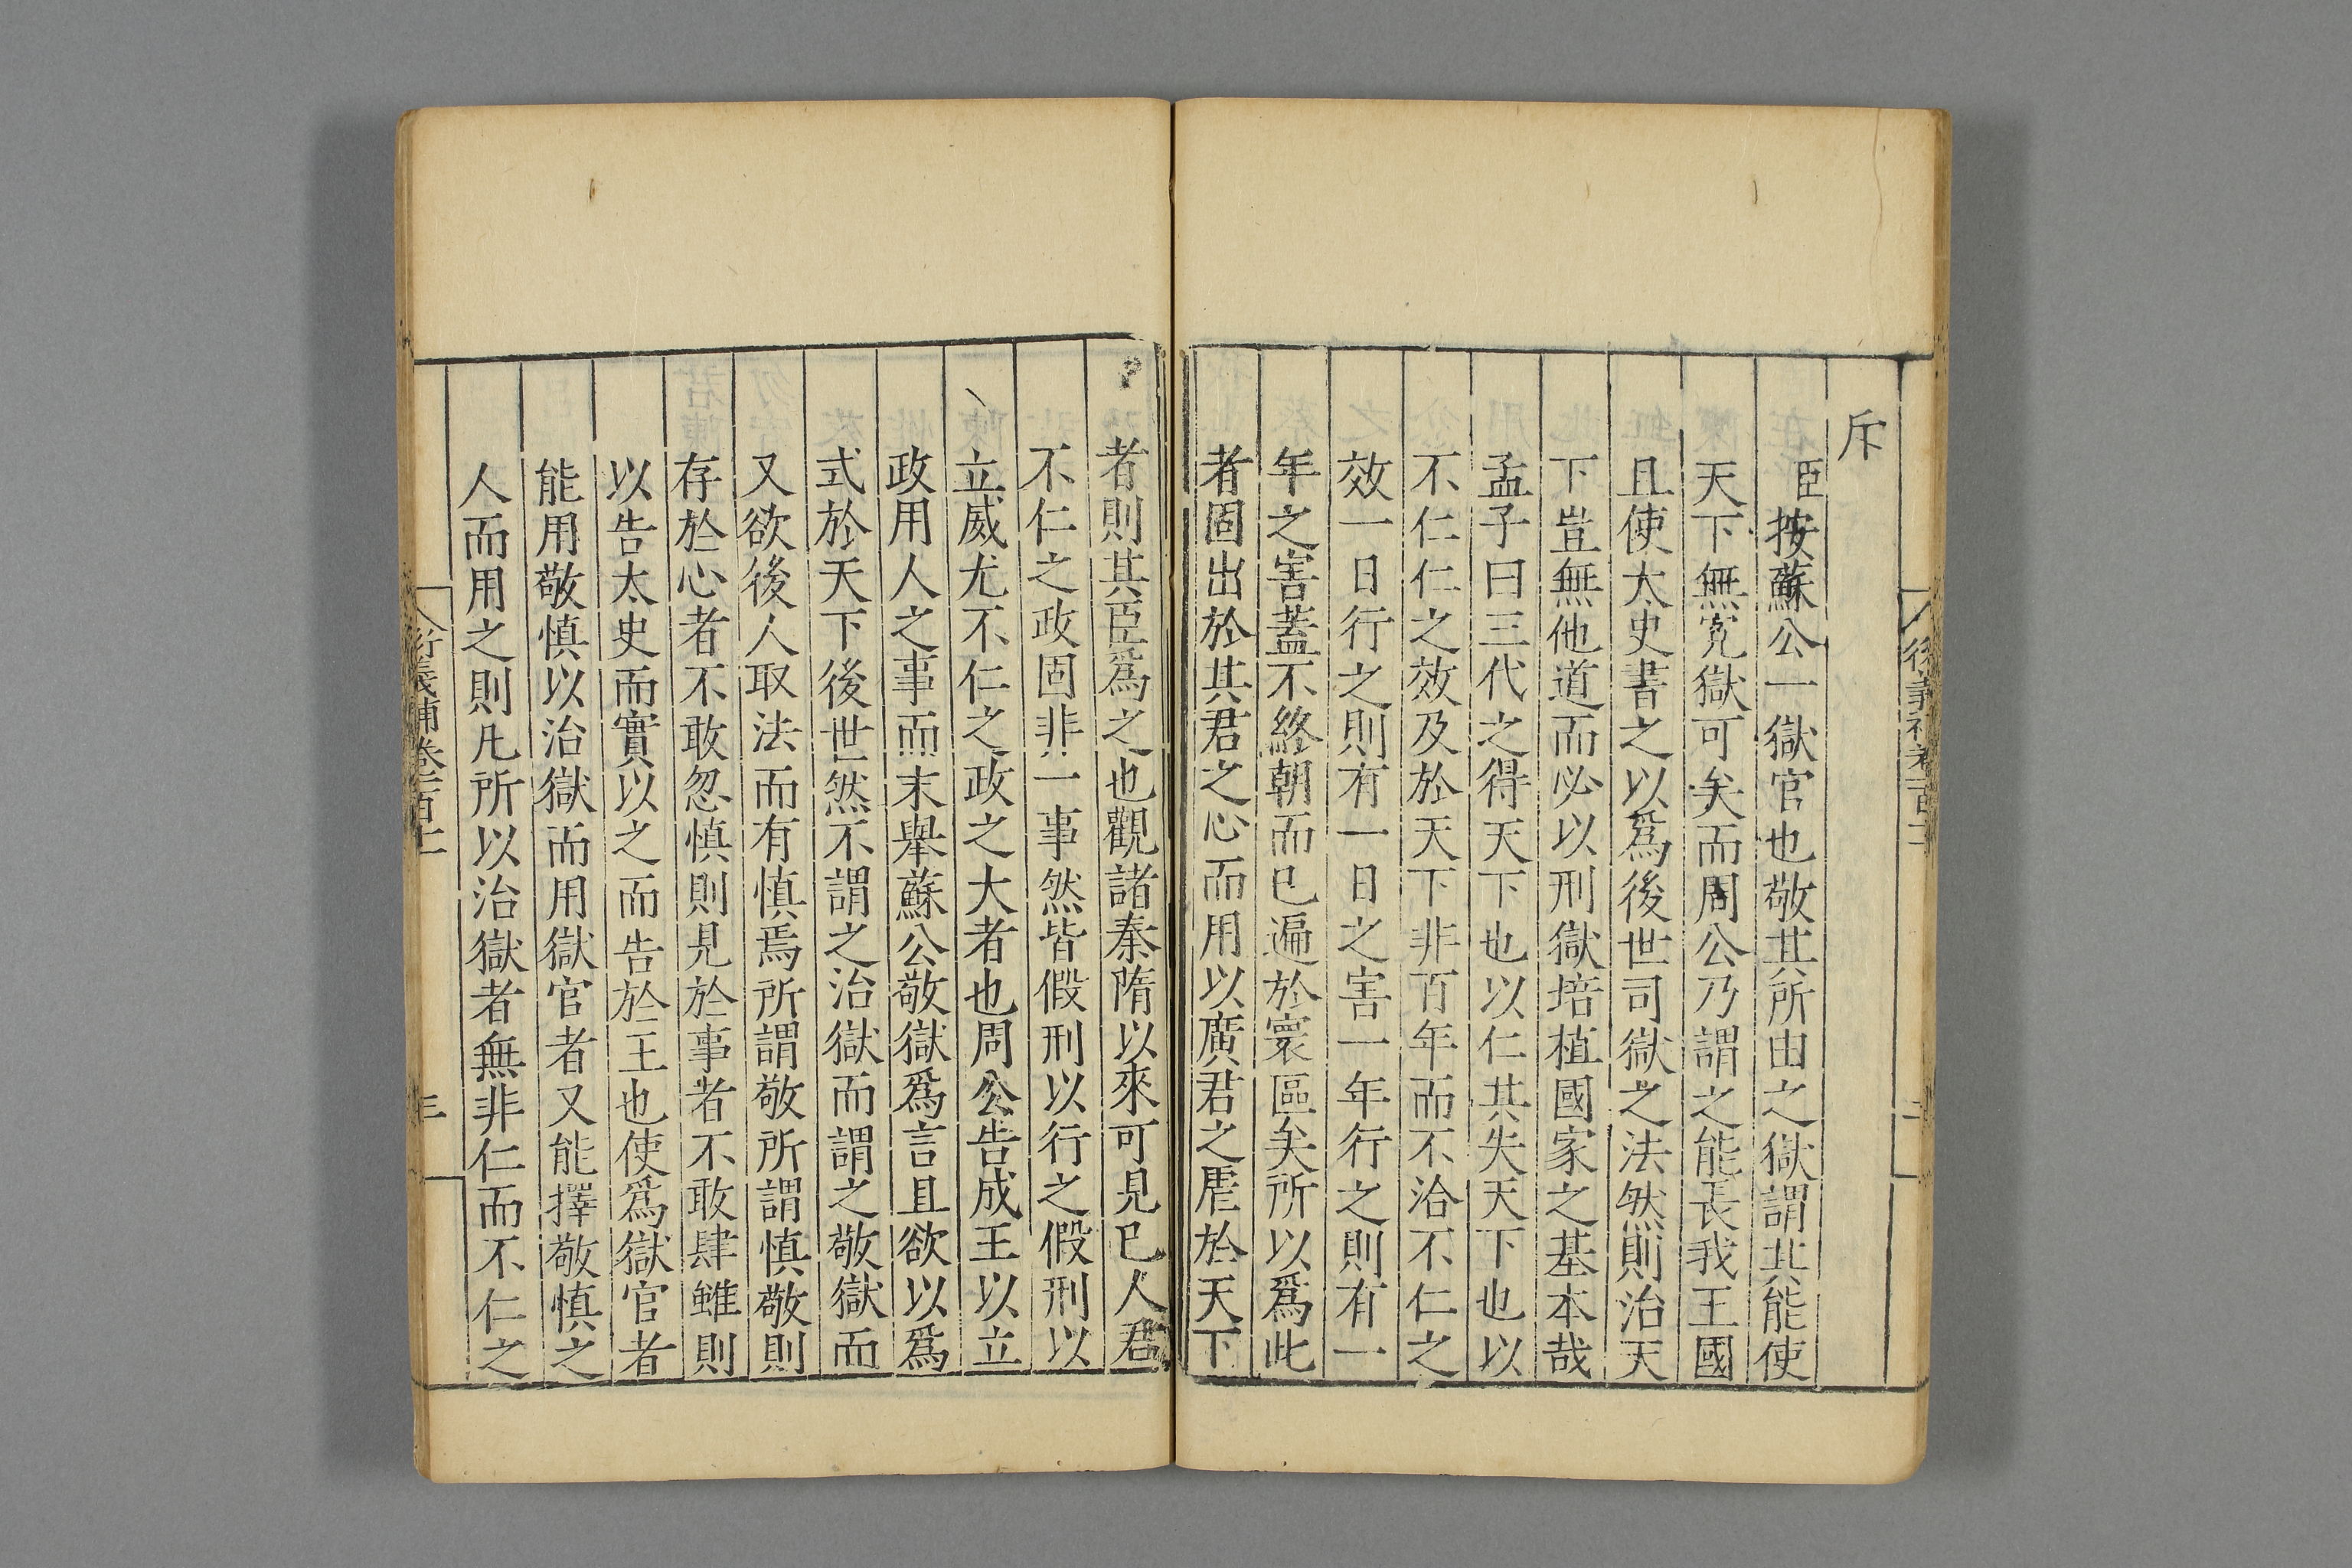 斥
臣按蘇公一獄官也敬其所由之獄謂其能使
天下無寃獄可矣而周公乃謂之能長我王國
且使太史書之以爲後世司獄之法然則治天
下豈無他道而必以刑獄培植國家之基本哉
孟子曰三代之得天下也以仁其失天下也以
不仁仁之效及於天下非百年而不洽不仁之
效一日行之則有一日之害一年行之則有一
年之害蓋不終朝而已遍於寰區矣所以爲此
者固出於其君之心而用以廣君之虐於天下
者則其臣爲之也觀諸秦隋以來可見已人君
不仁之政固非一事然皆假刑以行之假刑以
立威尤不仁之政之大者也周公告成王以立
政用人之事而末舉蘇公敬獄爲言且欲以爲
式於天下後世然不謂之治獄而謂之敬獄而
又欲後人取法而有慎焉所謂敬所謂慎敬則
存於心者不敢忽慎則見於事者不敢肆雖則
以告太史而實以之而告於王也使爲獄官者
能用敬慎以治獄而用獄官者又能擇敬慎之
人而用之則凡所以治獄者無非仁而不仁之